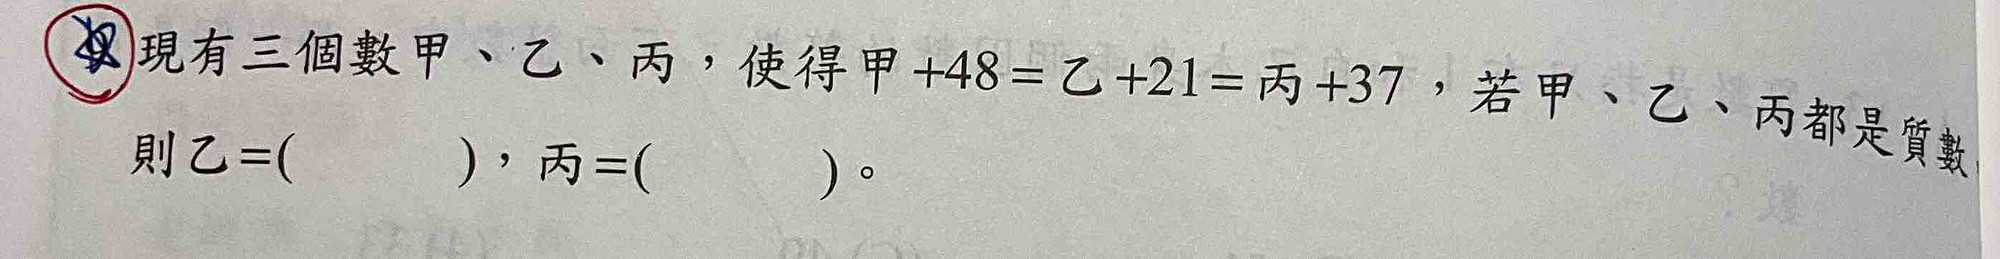 現有三個數甲、乙、丙，使得甲+48=乙+21=丙+37，若甲、乙、丙都是質數，
則乙=(　　　)，丙=(　　　)。